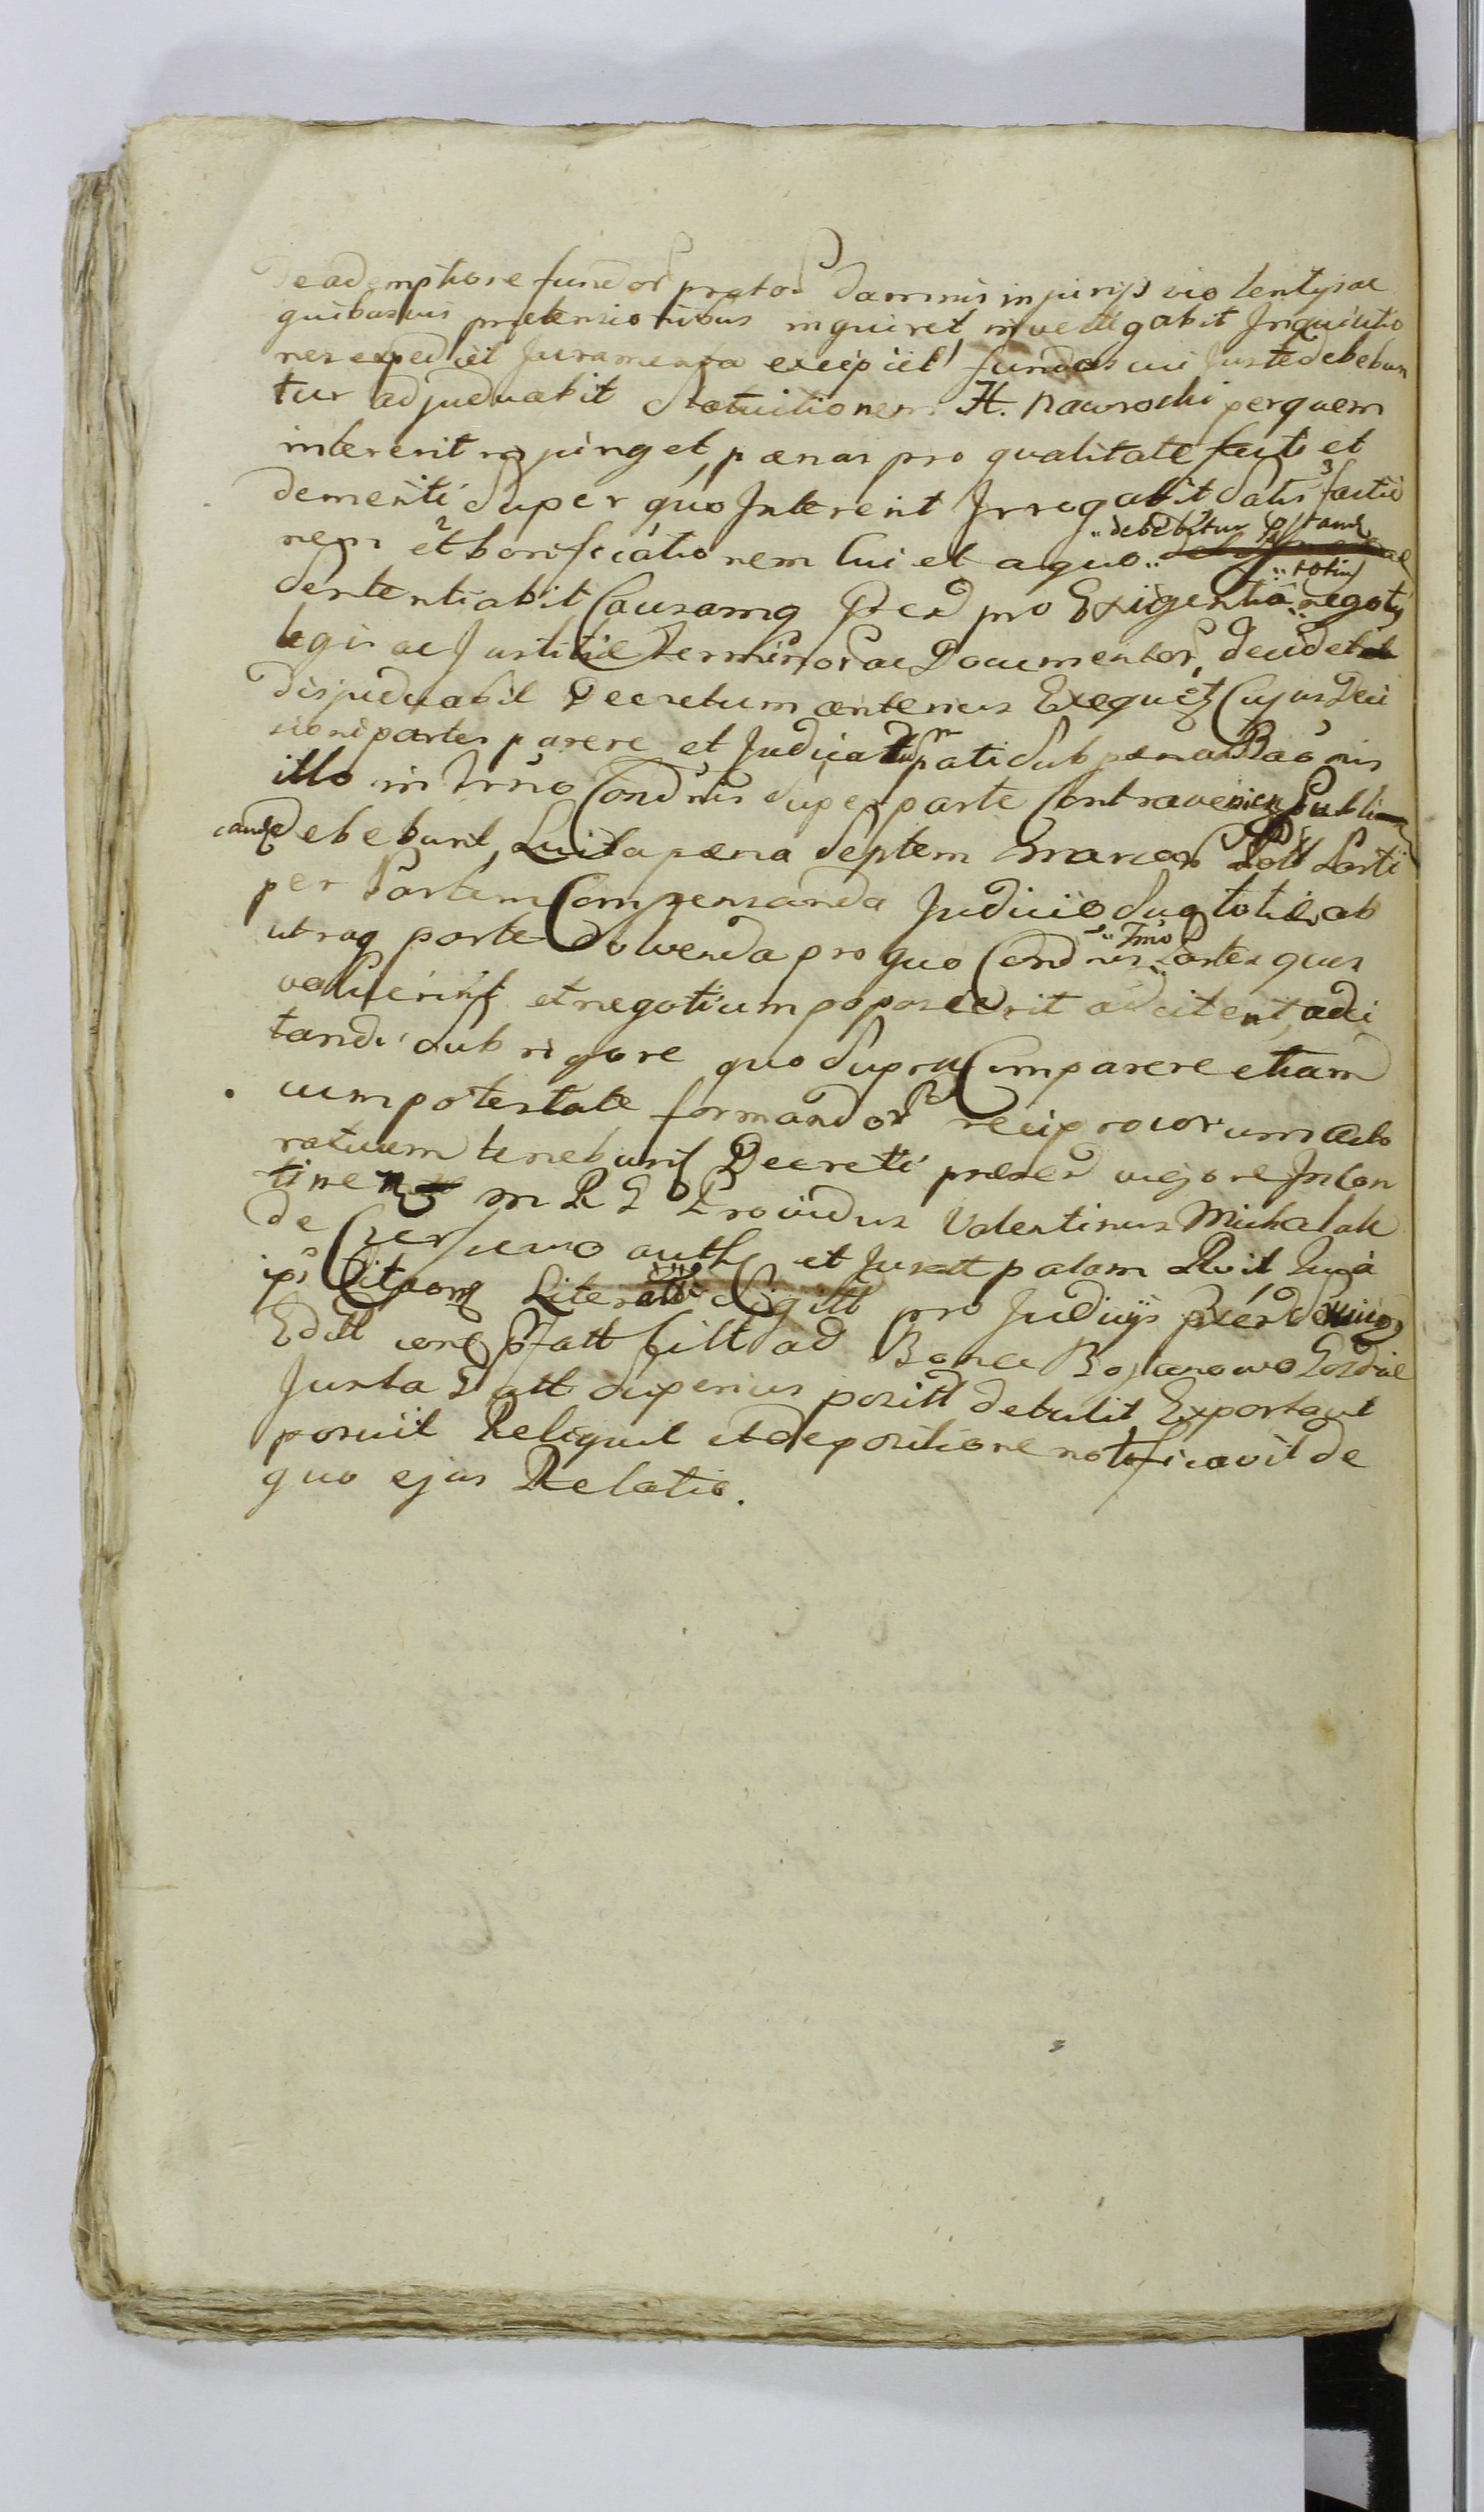 De ademptione fundor prator damnis injurijs violentijs ac
quibusvis prætensionibus inquiret investigabit Inquisitio
nes expediet Juramenta excipiet fundos cui Juste debebun
tur adjudicabit Statuitionem H. Nawrocki per quem
intererit injunget pænas pro qualitate facti et
demeriti super quo Intererit Irrogabit Satis facti
nem et bonificationem Cui et a quo debebitur
Sententiabit Causamq pro Exigentia totius negotij
legis ac Justitiæ Terminor ac Documentor decidet
disjudicabit Decretum anterius Exeque Cujus Deci
sioni partes parere et Judicatum pati sub pæna Baonis
illo in Trno Condnis super parte Contravenien Publi
cand debebunt Luita pæna Septem marcar Poll Parti
per Partem Compensanda Judicio duq toties ab
utraq parte Solvenda pro quo Condnis Trno Partes ques
voluerint et negotium poposcerit adcitent, adci
tandi sub rigore quo supra Comparere etiam
cum potestate formandor reciprocorum acto
ratuum tenebunt Decreti præsen vigore In Con
tinen m R S Providus Valentinus Michalak
de auth et Juratt palam Rvit Quia
ips Citaonq Literatt Sigitt pro Judicijs
Edit ad Bona Bojanowo
Juxta Datt superius positt detulit Exportavit
posuit Reliquit et de positione notificavit de
quo ejus Relatio.